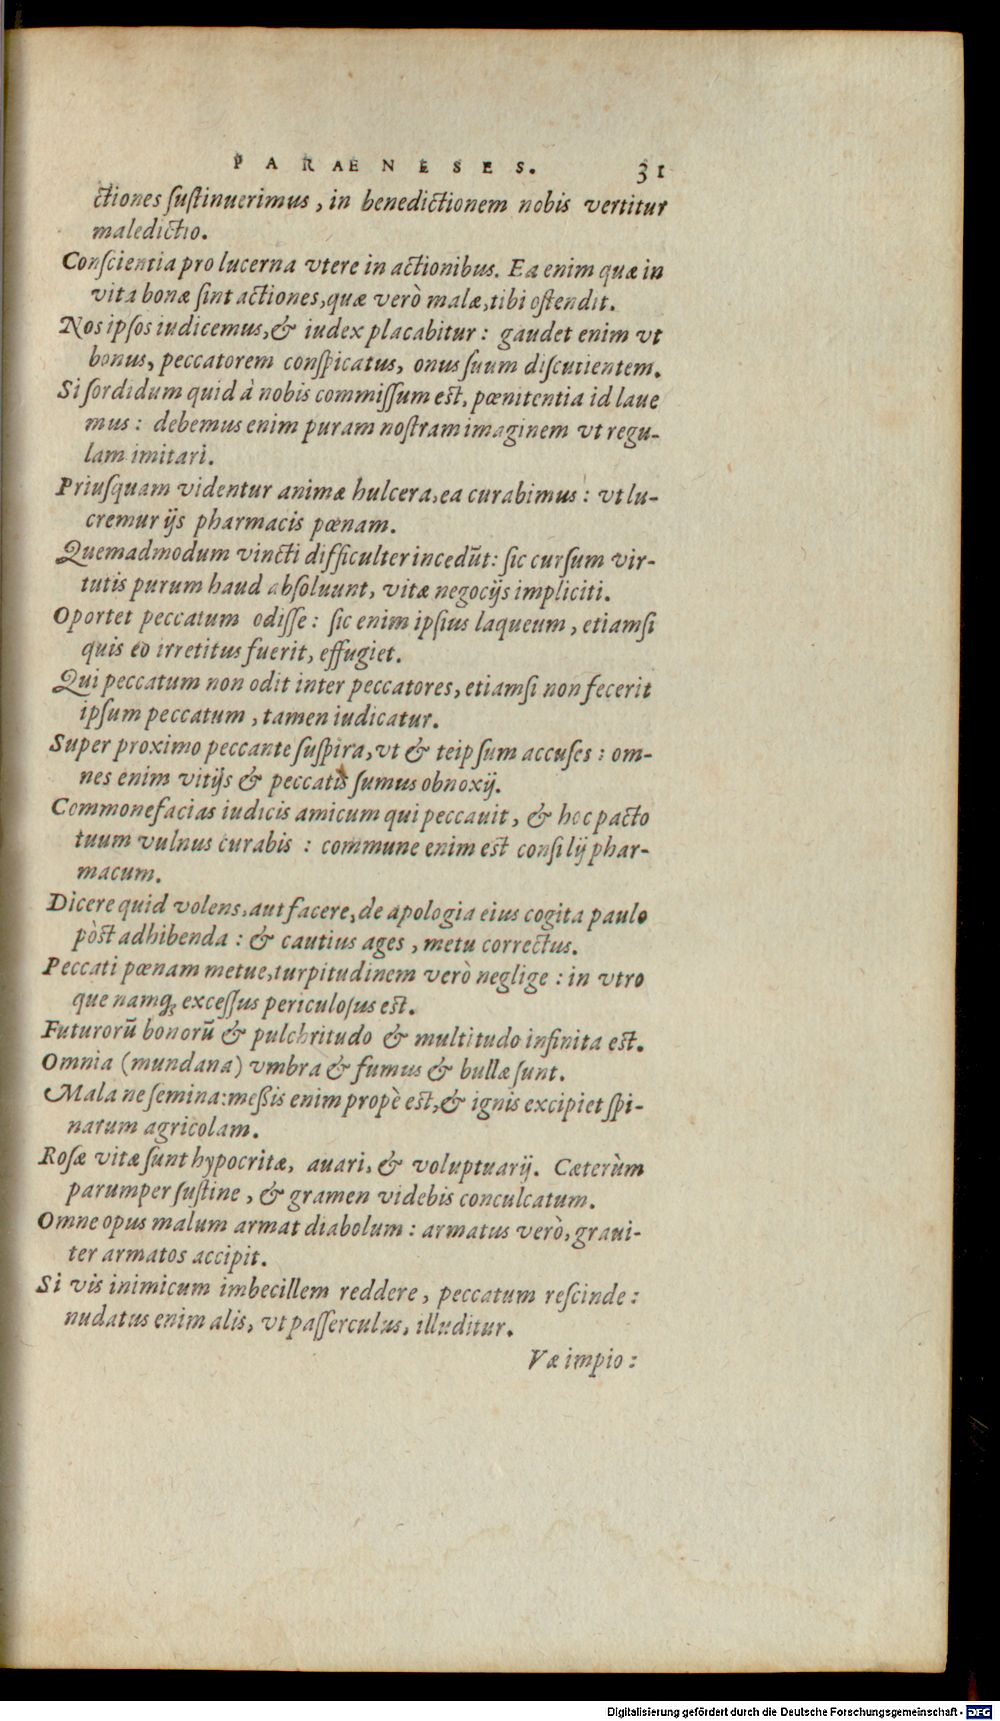 PARAENESES. 31
ctiones ſuſtinuerimus, in benedictionem nobis vertitur
maledictio.
Conſcientia pro lucerna vtere in actionibus. Ea enim quæ in
vita bonæ ſint actiones, quæ verò malæ, tibi oſtendit.
Nos ipſos iudicemus, & iudex placabitur: gaudet enim vt
bonus, peccatorem conſpicatus, onus ſuum diſcutientem.
Si ſordidum quid à nobis commiſſum est, pœnitentia id laue
mus: debemus enim puram noſtram imaginem vt regu-
lam imitari.
Priuſquam videntur animæ hulcera, ea curabimus: vt lu-
cremur ijs pharmacis pœnam.
Quemadmodum vincti difficulter incedūt: ſic curſum vir-
tutis purum haud abſoluunt, vitæ negocijs impliciti.
Oportet peccatum odiſſe: ſic enim ipſius laqueum, etiamſi
quis eo irretitus fuerit, effugiet.
Qui peccatum non odit inter peccatores, etiamſi non fecerit
ipſum peccatum, tamen iudicatur.
Super proximo peccante ſuſpira, vt & teipſum accuſes: om-
nes enim vitijs & peccatis ſumus obnoxij.
Commonefacias iudicis amicum qui peccauit, & hoc pacto
tuum vulnus curabis: commune enim est conſilij phar-
macum.
Dicere quid volens, aut facere, de apologia eius cogita paulo
pòst adhibenda: & cautius ages, metu correctus.
Peccati pœnam metue, turpitudinem verò neglige: in vtro
que namq; exceſſus periculoſus est.
Futurorū bonorū & pulchritudo & multitudo infinita est.
Omnia (mundana) vmbra & fumus & bullæ ſunt.
Mala ne ſemina: meßis enim propè est, & ignis excipiet ſpi-
narum agricolam.
Roſæ vitæ ſunt hypocritæ, auari, & voluptuarij. Cæterùm
parumper ſuſtine, & gramen videbis conculcatum.
Omne opus malum armat diabolum: armatus verò, graui-
ter armatos accipit.
Si vis inimicum imbecillem reddere, peccatum reſcinde:
nudatus enim alis, vt paſſerculus, illuditur.
Væ impio:
Digitalisierung gefördert durch die Deutsche Forschungsgemeinschaft - DFG